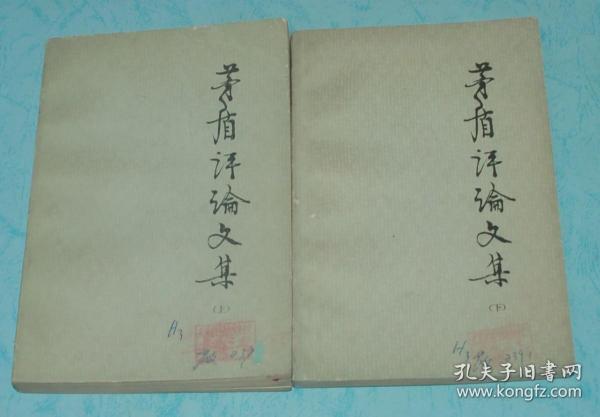 茅盾评论文集
(上)
H3
茅盾评论文集
(下)
H3
孔夫子旧书网
www.kongfz.com